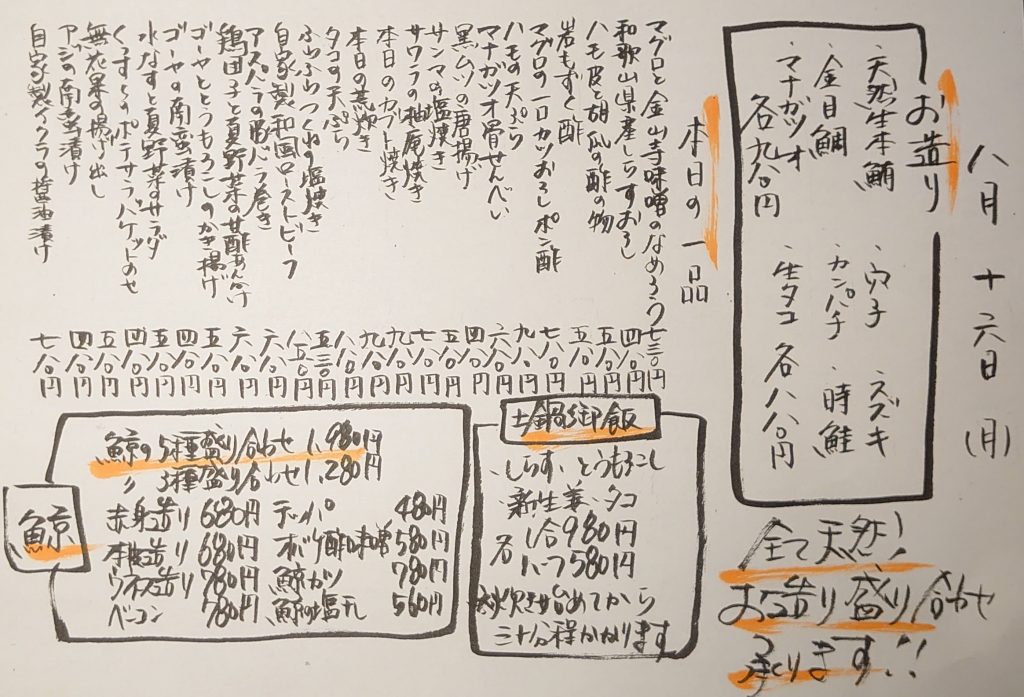 八月十六日(月)
お造り
・天然生本鮪 ・穴子 ・スズキ
・金目鯛 ・カンパチ ・時鮭
・マナガツオ ・生タコ 各八八〇円
各九八〇円
全て天然!
お造り盛り合わせ
承ります!!
本日の一品
マグロと金山寺味噌のなめろう 七三〇円
和歌山県産しらすおろし 四八〇円
ハモ皮と胡瓜の酢の物 五八〇円
岩もずく酢 五八〇円
マグロの一口カツおろしポン酢 七八〇円
ハモの天ぷら 九八〇円
マナガツオ骨せんべい 六八〇円
黒ムツの唐揚げ 四八〇円
サンマの塩焼き 五八〇円
サワラの柚庵焼き 七八〇円
本日のカブト焼き 九八〇円
本日の荒炊き 九八〇円
タコの天ぷら 八八〇円
ふわふわつくねの塩焼き 五三〇円
自家製和国ローストビーフ 八五〇円
アスパラの豚バラ巻き 六八〇円
鶏団子と夏野菜の甘酢あんかけ 六八〇円
ゴーヤととうもろこしのかき揚げ 五八〇円
ゴーヤの南蛮漬け 四八〇円
水なすと夏野菜サラダ 五八〇円
ポテサラバケットのせ 四八〇円
無花果の揚げ出し 五八〇円
アジの南蛮漬け 四八〇円
自家製イクラの醤油漬け 七八〇円
土鍋御飯
・しらす・とうもろこし
・新生姜・タコ
各 1合980円
ハーフ580円
炊き始めてから
三十分程かかります
鯨
鯨の5種盛り合わせ 1,980円
〃 3種盛り合わせ 1,280円
赤身造り 680円 テッパ 480円
本皮造り 680円 オバケ酢味噌 580円
ウネス造り 780円 鯨カツ 780円
ベーコン 780円 鯨の塩干 560円